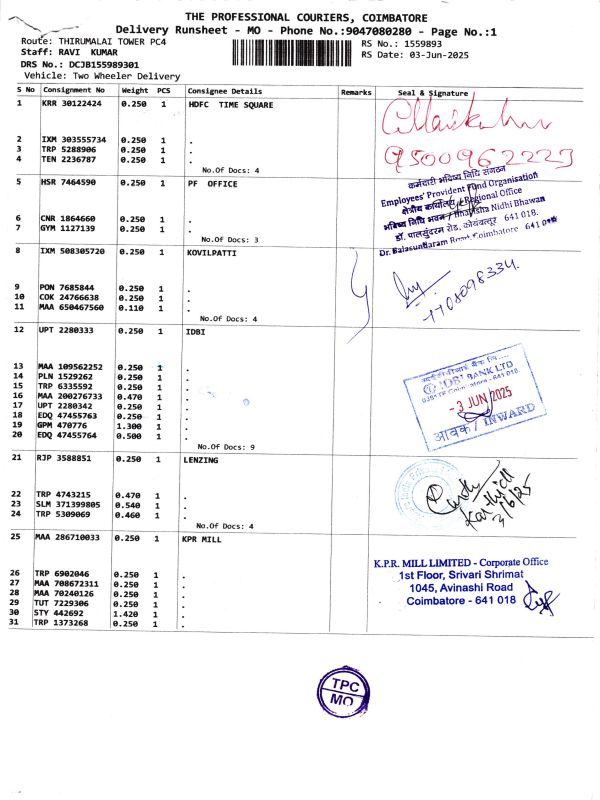 THE PROFESSIONAL COURIERS, COIMBATORE
Delivery Runsheet - MO - Phone No.:9047080280 - Page No.:1
Route: THIRUMALAI TOWER PC4
RS No.: 1559893
Staff: RAVI KUMAR
RS Date: 03-Jun-2025
DRS No.: DCJB155989301
Vehicle: Two Wheeler Delivery
S No Consignment No Weight PCS Consignee Details Remarks Seal & Signature
1 KRR 30122424 0.250 1 HDFC TIME SQUARE
2 IXM 303555734 0.250 1 .
3 TRP 5288906 0.250 1 .
4 TEN 2236787 0.250 1 .
No.Of Docs: 4
9500962223
5 HSR 7464590 0.250 1 PF OFFICE
6 CNR 1864660 0.250 1 .
7 GYM 1127139 0.250 1 .
No.Of Docs: 3
कर्मचारी भविष्य निधि संगठन
Employees' Provident Fund Organisation
क्षेत्रीय कार्यालय / Regional Office
भविष्य निधि भवन / Bhavishya Nidhi Bhawan
डॉ. बालासुंदरम रोड, कोयंबत्तूर 641 018.
Dr. Balasundaram Road, Coimbatore - 641 018
8 IXM 508305720 0.250 1 KOVILPATTI
9 PON 7685844 0.250 1 .
10 COK 24766638 0.250 1 .
11 MAA 650467560 0.110 1 .
No.Of Docs: 4
7708098334.
12 UPT 2280333 0.250 1 IDBI
13 MAA 109562252 0.250 1 .
14 PLN 1529262 0.250 1 .
15 TRP 6335592 0.250 1 .
16 MAA 200276733 0.470 1 .
17 UPT 2280342 0.250 1 .
18 EDQ 47455763 0.250 1 .
19 GPM 470776 1.300 1 .
20 EDQ 47455764 0.500 1 .
No.Of Docs: 9
IDBI BANK LTD
- 3 JUN 2025
आवक / INWARD
21 RJP 3588851 0.250 1 LENZING
22 TRP 4743215 0.470 1 .
23 SLM 371399805 0.540 1 .
24 TRP 5309069 0.460 1 .
No.Of Docs: 4
Karthick
3/6/25
25 MAA 286710033 0.250 1 KPR MILL
26 TRP 6902046 0.250 1 .
27 MAA 708672311 0.250 1 .
28 MAA 70240126 0.250 1 .
29 TUT 7229306 0.250 1 .
30 STY 442692 1.420 1 .
31 TRP 1373268 0.250 1 .
K.P.R. MILL LIMITED - Corporate Office
1st Floor, Srivari Shrimat
1045, Avinashi Road
Coimbatore - 641 018
TPC
MO